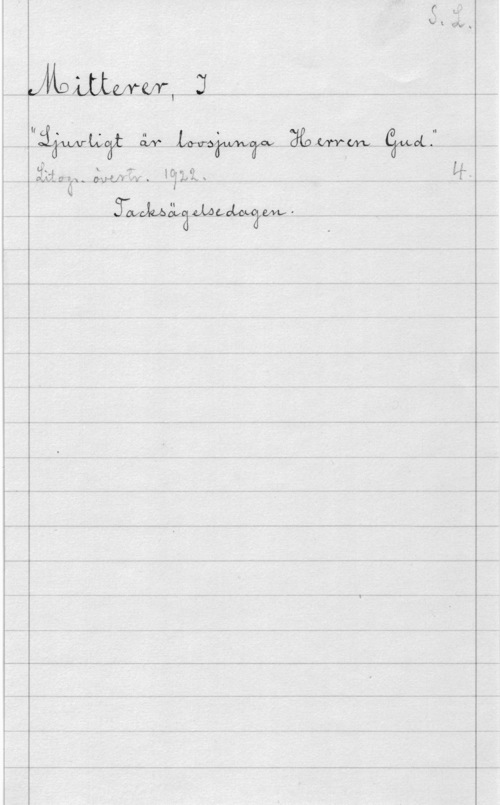 S. L.
Mitterer, I
"Ljuvligt är lovsjunga Herren Gud."
Litogr. övertr. 1922. 4.
Tacksägelsedagen.